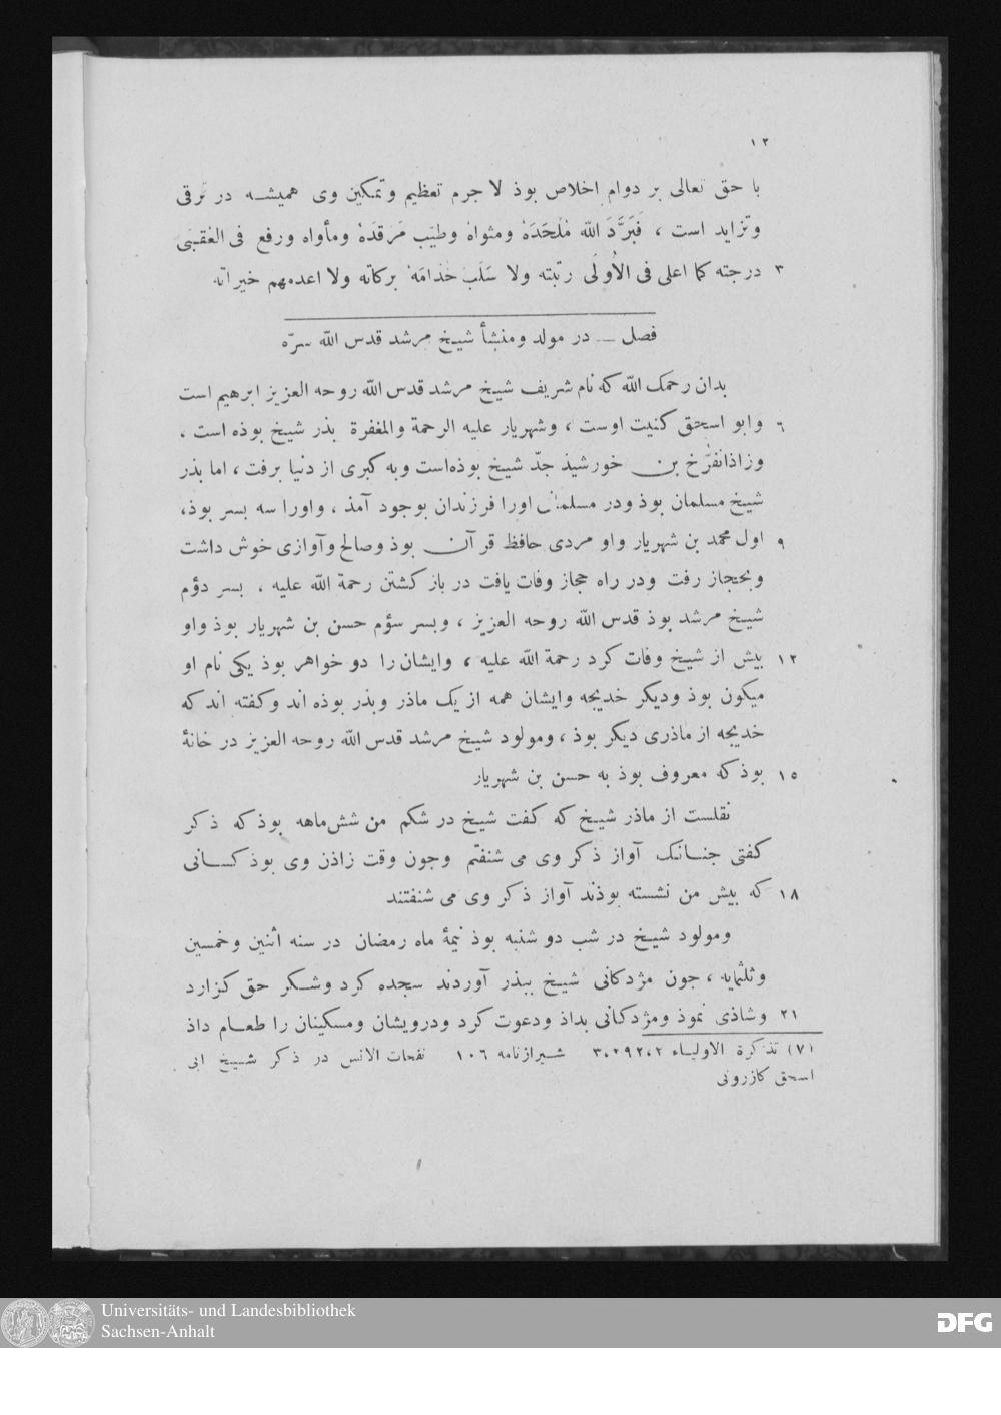 ١٢
با حق تعالی بر دوام اخلاص بوذ لا جرم تعظیم و تمکین وی همیشـه در ترقی
وتزاید است ، فَبَرَّدَ اللّه مُلْحَدَهْ ومثواهْ وطیَب مَرقدَهْ ومأواه ورفع فی العُقـبَی
٣ درجته کما اعلی فی الاُولَی رتبته ولا سَلَبَ خُدّامَهْ برکاته ولا اعدمهم خیراته.
فصل — در مولد ومنشأ شیخ مرشد قدس اللّه سرّه
بدان رحمک اللّه که نام شریف شیخ مرشد قدس اللّه روحه العزیز ابرهیم است
٦ وابو اسحق کنیت اوست ، وشهریار علیه الرحمة والمغفرة بذر شیخ بوذه است .
وزاذانفرّخ بن خورشیذ جدّ شیخ بوذه‌است وبه کبری از دنیا برفت ، اما بذر
شیخ مسلمان بوذ ودر مسلمانی اورا فرزندان بوجود آمذ ، واورا سه بسر بوذ،
٩ اول محمد بن شهریار واو مردی حافظ قرآن بوذ وصالح وآوازی خوش داشت
وبحجاز رفت ودر راه حجاز وفات یافت در باز کشتن رحمة اللّه علیه . بسر دؤم
شیخ مرشد بوذ قدس اللّه روحه العزیز ، وبسر سؤم حسن بن شهریار بوذ واو
١٢ بیش از شیخ وفات کرد رحمة اللّه علیه ، وایشان را دو خواهر بوذ یکی نام او
میکون بوذ ودیکر خدیجه وایشان همه از یک ماذر وبذر بوذه اند وکفته اند که
خدیجه از ماذری دیکر بوذ ، ومولود شیخ مرشد قدس اللّه روحه العزیز در خانهٔ
١٥ بوذ که معروف بوذ به حسن بن شهریار
نقلست از ماذر شیخ که کفت شیخ در شکم من شش‌ماهه بوذ که ذکر
کفتی جنـانک آواز ذکر وی می شنفتم وجون وقت زاذن وی بوذ کسـانی
١٨ که بیش من نشسته بوذند آواز ذکر وی می شنفتند
ومولود شیخ در شب دو شنبه بوذ نیمهٔ ماه رمضان در سنه اثنین وخمسین
وثلثمایه ، جون مژدکانی شیخ ببذر آوردند سجده کرد وشـکر حق کزارد
٢١ وشاذی نموذ ومژدکانی بداذ ودعوت کرد ودرویشان ومسکینان را طعـام داذ
(٧) تذکرة الاولیـاء ٣٠،٢٩٢،٢ شـیرازنامه ١٠٦ نفحات الانس در ذکر شـیخ ابی
اسحق کازرونی
Universitäts- und Landesbibliothek
Sachsen-Anhalt
DFG